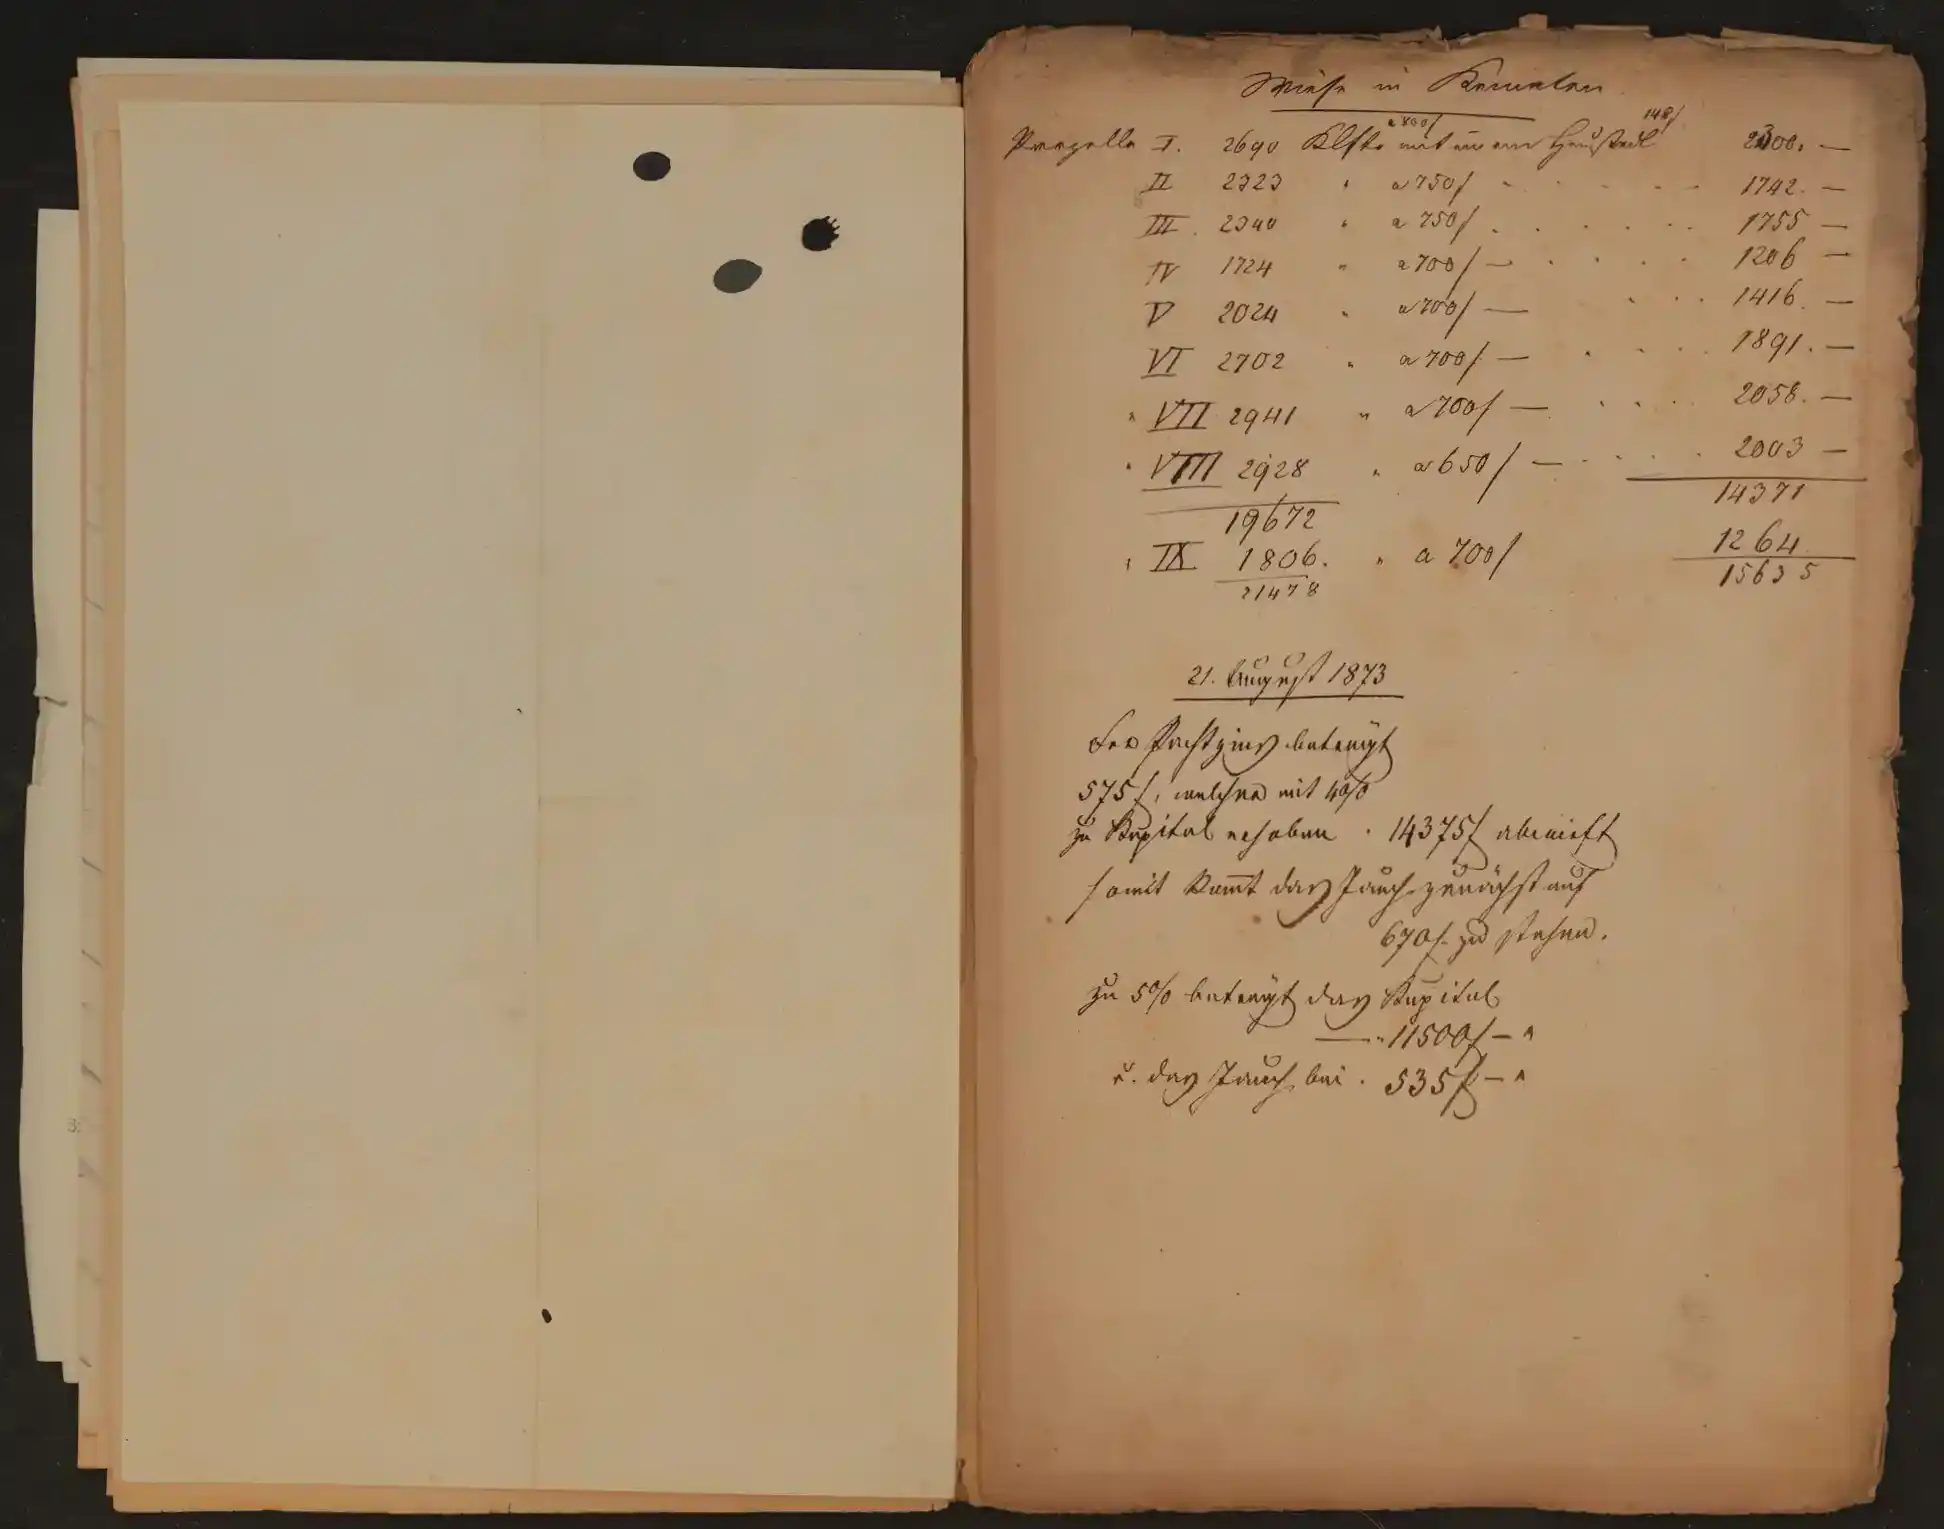 Wiese in Kematen
a 800 f 148 f
Parzelle I. 2690 Klftr mit einem Heustadl 2300. —
II 2323 " a 750 f - - - - - 1742. —
III. 2340 " a 750 f . . . . . . 1755 —
IV 1724 " a 700 f — . . . . 1206 —
V 2024 " a 700 f — . . . 1416. —
VI 2702 " a 700 f — . . . . 1891. —
" VII 2941 " a 700 f — . . . . 2058. —
" VIII 2928 " a 650 f — . . . . 2003 —
19672 14371
" IX 1806. " a 700 f 1264
21478 15635
21. August 1873
Der Pachtzins beträgt
575 f, welcher mit 4%
zu Kapital erhoben . 14375 f abwirft
somit kommt das Jauch zunächst auf
670 f. zu stehen.
zu 5% beträgt das Kapital
— " 11500 f — "
u. das Jauch bei . 535 f — "